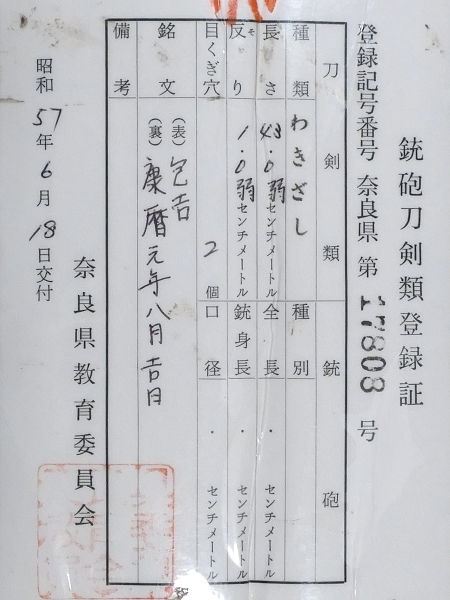 銃砲刀剣類登録証
登録記号番号 奈良県 第 17808 号
刀剣類 銃砲
種類 わきざし 種別
長さ 43.0弱センチメートル 全長 . センチメートル
反り そ 1.0弱センチメートル 銃身長 . センチメートル
目くぎ穴 2個 口径 . センチメートル
銘文 (表) 包吉
(裏) 康暦元年八月吉日
備考
昭和57年6月18日交付
奈良県教育委員会